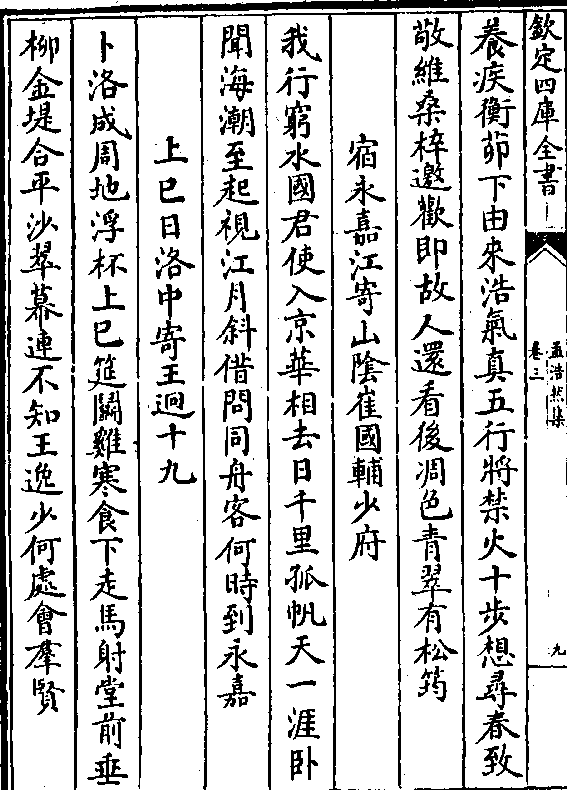 欽定四庫全書
孟浩然集
卷三
九
養疾衡茆下由來浩氣真五行將禁火十步想尋春致
敬維桑梓邀歡即故人還看後凋色青翠有松筠
宿永嘉江寄山陰崔國輔少府
我行窮水國君使入京華相去日千里孤帆天一涯卧
聞海潮至起視江月斜借問同舟客何時到永嘉
上巳日洛中寄王迥十九
卜洛成周地浮杯上巳筵鬬雞寒食下走馬射堂前垂
柳金堤合平沙翠幕連不知王逸少何處會羣賢